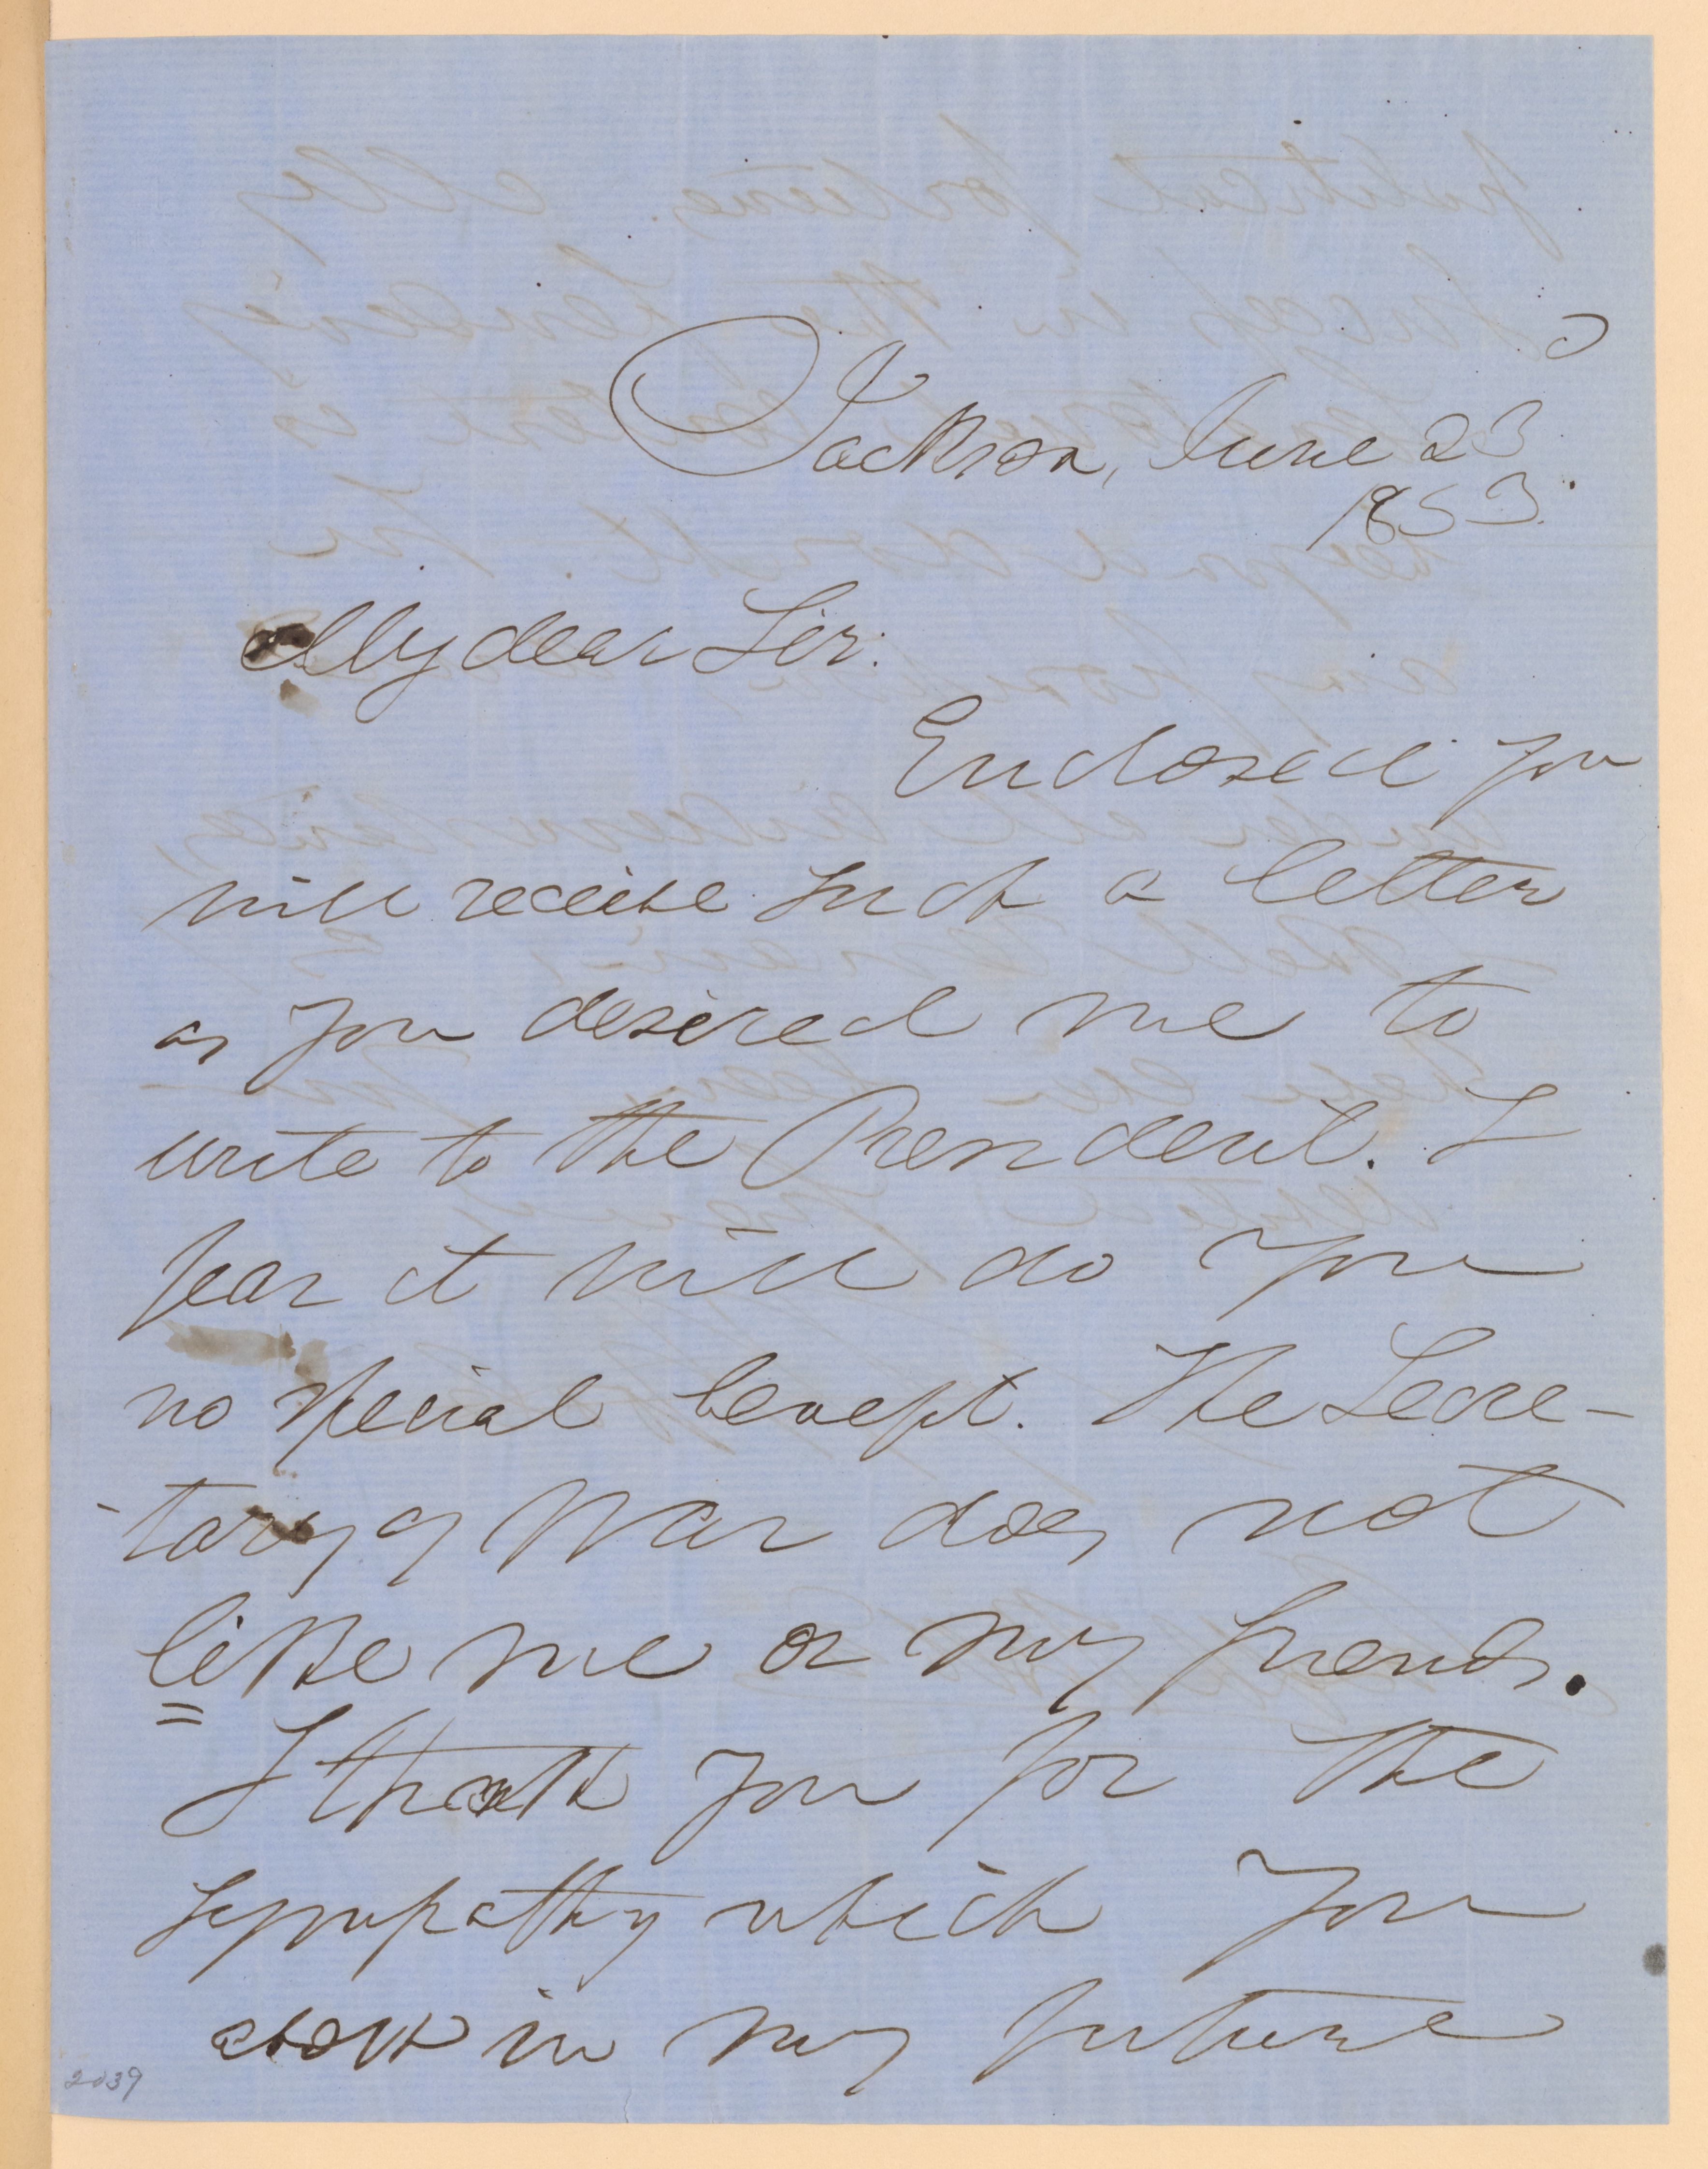 Jackson, June 23
1853.
My dear Sir:
Enclosed you
will receive such a letter
as you desired me to
write to the President. I
fear it will do you
no special benefit. The Secre-
-tary of War does not
like me or my friends.
I thank you for the
sympathy which you
show in my future
2039